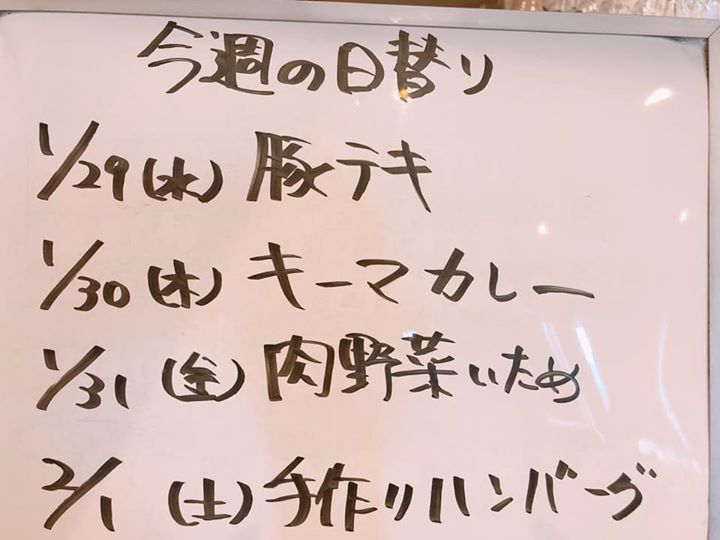 今週の日替り
1/29(水) 豚テキ
1/30(木) キーマカレー
1/31(金) 肉野菜いため
2/1(土) 手作りハンバーグ